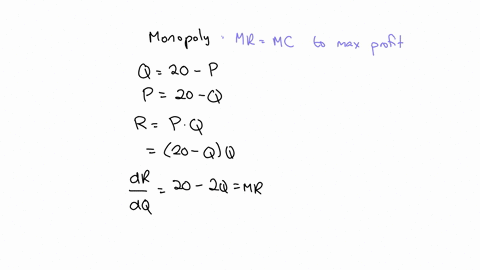 Monopoly · MR = MC to max profit
Q = 20 - P
P = 20 - Q
R = P · Q
= (20 - Q) Q
dR/dQ = 20 - 2Q = MR